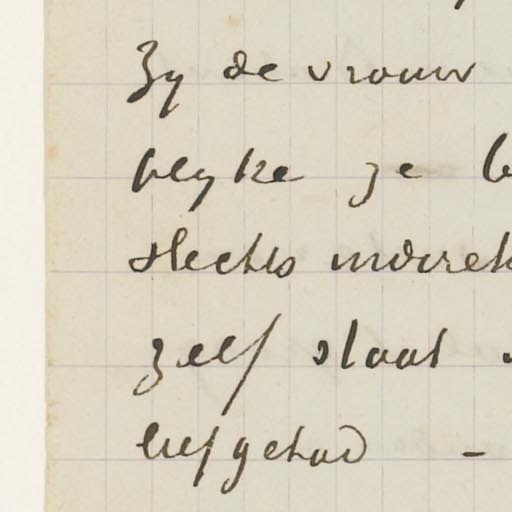 Zy de vrouw
blyke ze
slechts indirek
zelf staat
liefgehad –